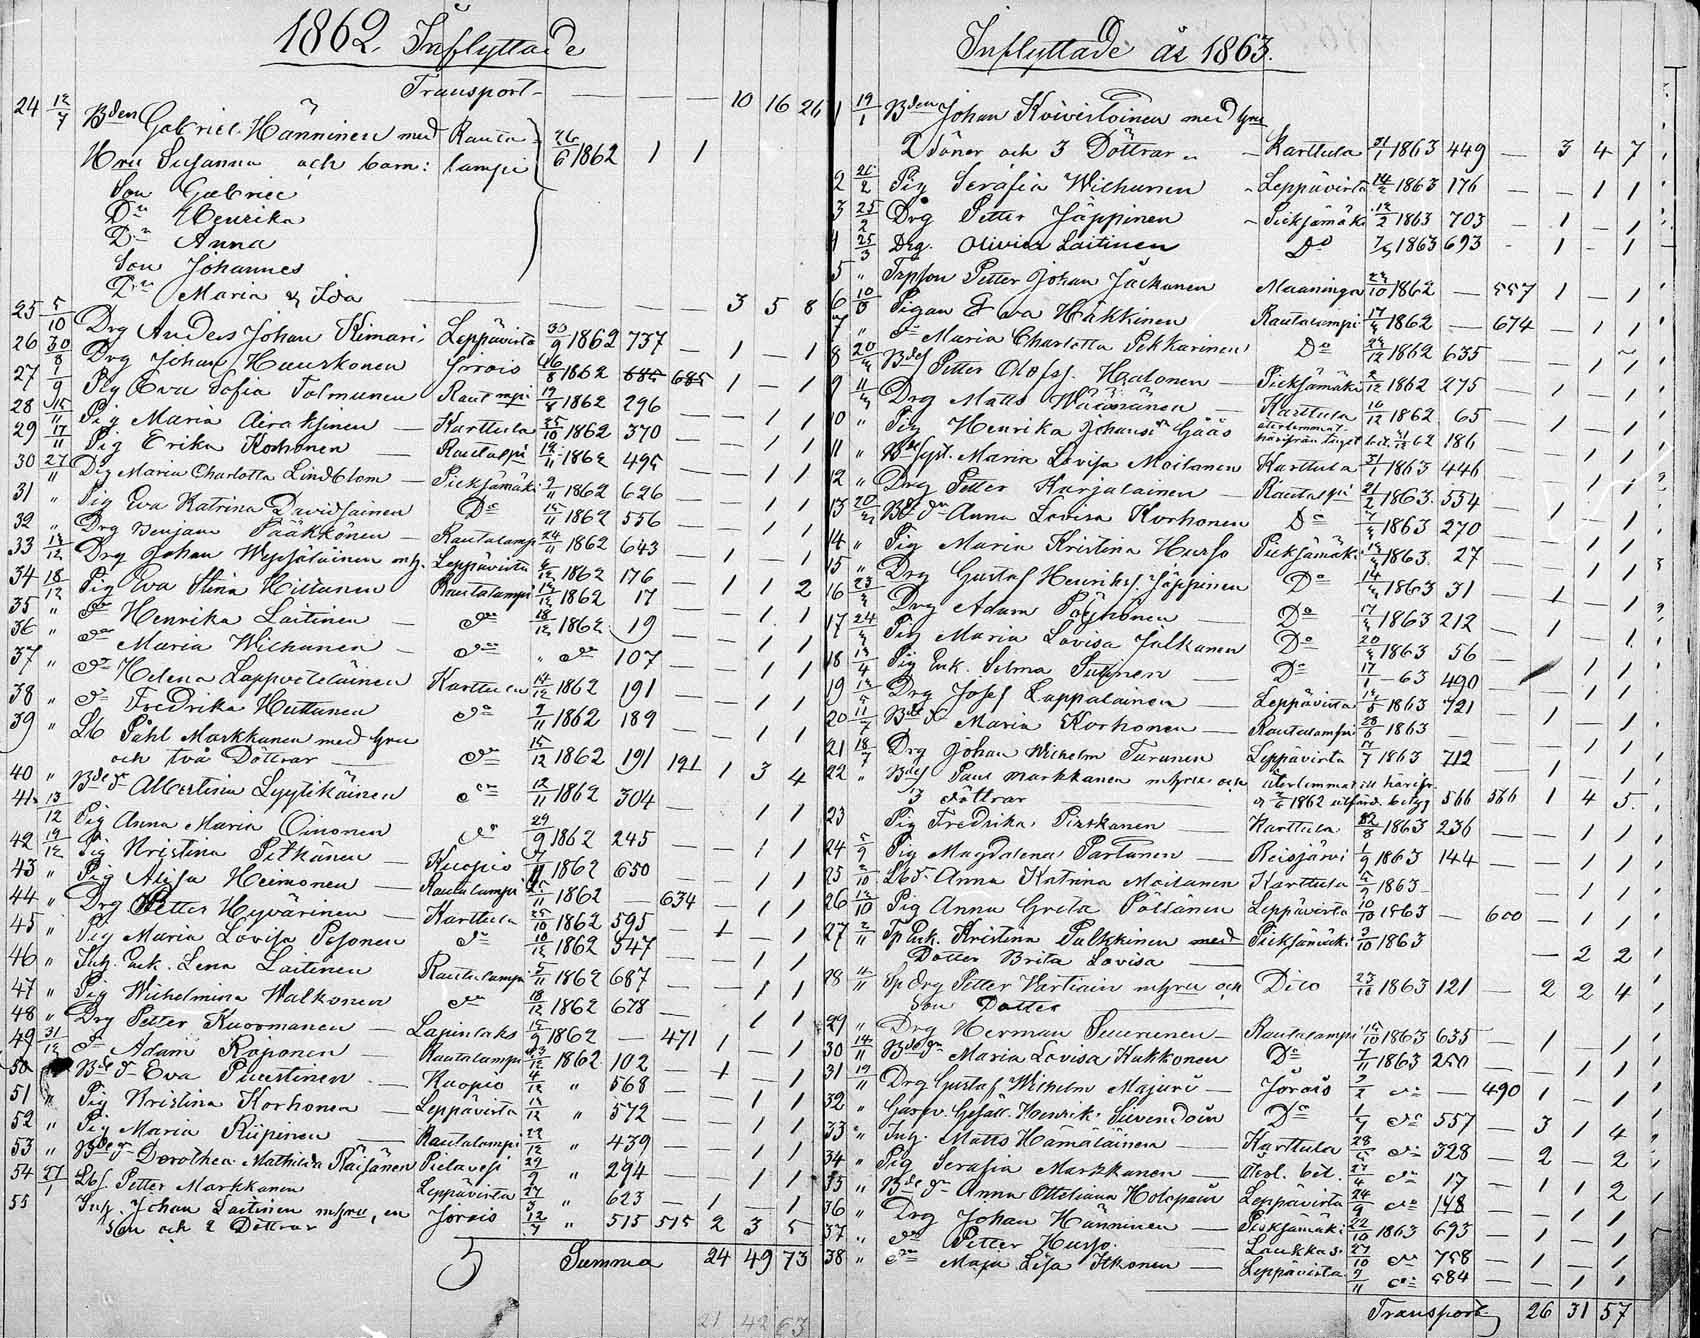 1862. Inflyttade
Transport - — — — 10 16 26
24 12/7 Bden Gabriel Hänninen med Rauta 26/6 1862 1 1
Hru Susanna och barn: lampi
Son Gabriel
Dr Henrika
Dr Anna
Son Johannes
Dr Maria & Ida — — — — 3 5 8
25 5/10 Drg Anders Johan Kimari Leppävirta 30/9 1862 737 — 1 — 1
26 30/8 Drg Johan Hauskonen Jorois 16/8 1862 685 685 1 — 1
27 1/9 Pig Eva Sofia Tolmunen Rautmpi 19/8 1862 296 — — 1 1
28 15/11 Pig Maria Airaksinen — Karttula 25/10 1862 370 — — 1 1
29 17/11 Pig Erika Korhonen — Rautalpi 1862 495 — — 1 1
30 27/11 Pig Maria Charlotta Lindblom — Pieksämäki 9/11 1862 626 — — 1 1
31 " Pig Eva Katrina Davidsainen Do 15/11 1862 556 — — 1 1
32 " Drg Benjam Pääkkönen — Rautalamp 24/11 1862 643 — 1 — 1
33 13/12 Drg Johan Weijalainen Leppävirta 1862 176 — 1 1 2
34 18/12 Pig Eva Stina Hiltunen Rautalampi 1862 17 — — 1 1
35 " do Henrika Laitinen — do 18/12 1862 19 — — 1 1
36 " do Maria Wilhunen — do " do 107 — — 1 1
37 " do Helena Lappveteläinen Karttula 14/12 1862 191 — — 1 1
38 " do Fredrika Huttunen do 9/11 1862 189 — — 1 1
39 " Lb Påhl Markkanen med hru
och två Döttrar — do 15/12 1862 191 191 1 3 4
40 " Bde dr Albertina Lyytikäinen do 12/11 1862 304 — — 1 1
41 13/12 Pig Anna Maria Oinonen do 29/9 1862 245 — — 1 1
42 19/12 Pig Kristina Pitkänen — Kuopio 1862 650 — — 1 1
43 " Pig Alisa Heimonen — Rautalampi 1862 — 634 — 1 1
44 " Drg Petter Hyvärinen — Karttula 25/10 1862 595 — 1 — 1
45 " Pig Maria Lovisa Pesonen do 10/12 1862 547 — — 1 1
46 " Inh. Enk. Lena Laitinen Rautalampi 5/11 1862 687 — — 1 1
47 " Pig Wilhelmina Walkonen do 18/12 1862 678 — — 1 1
48 " Drg Petter Kuosmanen — Lapinlaks 15/9 1862 — 471 1 — 1
49 31/12 do Adam Roponen — Rautalampi 1862 102 — 1 — 1
50 Bde dr Eva Puustinen — Kuopio 4/12 " 568 — — 1 1
51 " Pig Kristina Korhonen — Leppävirta " 572 — — 1 1
52 " Pig Maria Riipinen — Rautalampi 22/12 " 439 — — 1 1
53 " Bde dr Dorothea Mathilda Räisänen Pielavesi 29/9 " 294 — — 1 1
54 27/1 Lbs. Petter Markkanen Leppävirta " 623 — 1 — 1
55 Inh. Johan Laitinen m hru, en Jorois 12/7 " 515 515 2 3 5
Son och 2 Döttrar
Summa 24 49 73
21 42 63
Inflyttade år 1863.
1 19/1 Bden Johan Koivistoinen med hru
2 Söner och 3 Döttrar — Karttula 31/1 1863 449 — 3 4 7
2 Pig Serafia Wilhunen — Leppävirta 14/2 1863 176 — — 1 1
3 25/2 Drg Petter Jäppinen — Pieksämäki 12/2 1863 703 — 1 — 1
4 25/3 Drg. Olivier Laitinen Do 1863 693 - 1 - 1
5 " Petter Johan Jäskanen Maaninga 1862 — 557 1 — 1
6 10/3 Pigan Eva Häkkinen Rautalampi 1862 — 674 — 1 1
7 " do Maria Charlotta Pekkarinen Do 1862 635 — —
8 Bdes Petter Olofss. Halonen — Pieksämäki 1862 275 — 1 — 1
9 Drg Matts Wäisänen — Karttula 16/12 1862 65 — 1 — 1
10 " Pig Henrika Johansdr Gååås 62 186 — — 1 1
11 " Maria Lovisa Moilanen Karttula 31/1 1863 446 — — 1 1
12 " Drg Petter Karjalainen — Rautalpi 21/2 1863 554 — 1 — 1
13 Bde dr Anna Lovisa Korhonen Do 1863 270 — — 1 1
14 " Pig Maria Kristina Husso Pieksämäki 1863 27 — — 1 1
15 " Drg Gustaf Henrikss. Jäppinen Do 1863 31 — 1 — 1
16 Drg Adam Pöyhönen — Do 1863 212 — 1 — 1
17 Pig Maria Lovisa Jalkanen Do 1863 56 — — 1 1
18 13/4 Pig Enk. Selma Suhonen — Do 17/1 — 63 490 — 1 1
19 Drg Josef Lappalainen — Leppävirta 1863 721 — 1 — 1
20 Bde dr Maria Korhonen — Rautalampi 28/6 1863 — — — 1 1
21 18/7 Drg Johan Wilhelm Turunen Leppävirta 1863 712 — 1 — 1
22 " Bdes Paul Markkanen m hru och återlemmat
3 döttrar 1862 566 566 1 4 5
23 Pig Fredrika Pirskanen — Karttula 22/8 1863 236 — — 1 1
24 5/9 Pig Magdalena Partanen — Reisjärvi 1/9 1863 144 — — 1 1
25 Anna Katrina Moilanen Karttula 1863 — — — 1 1
26 12/10 Pig Anna Greta Pöllänen Leppävirta 10/10 1863 — 600 — 1 1
27 2/11 Enk. Kristina Pulkkinen med Pieksämäki 3/10 1863
Dotter Brita Lovisa — — 2 2
28 Drg Petter Vartiain m hru och Dito 23/10 1863 121 — 2 2 4
Son Dotter —
29 " Drg Herman Suurunen — Rautalampi 15/10 1863 635 — 1 — 1
30 14/11 Bde dr Maria Lovisa Kukkonen Do 7/11 1863 250 — — 1 1
31 19/11 Drg Gustaf Wilhelm Majuri — Jorois do — 490 1 — 1
32 " Garfv. Gesäll. Henrik Do do 557 — 3 1 4
33 " Inh. Matts Hämäläinen Karttula do 328 — 2 — 2
34 " Pig Serafia Markkanen — do 17 — — 1 1
35 " Bde dr Anna Otteliana Holopain Leppävirta 24/9 do 148 — 1 1 2
36 " Drg Johan Hänninen — Pieksämäki 22/10 1863 693 — 1 — 1
37 " do Petter Husso — Laukkas 27/10 do 758 — 1 — 1
38 " do Maja Lisa Itkonen — Leppävirta do 584 — — 1 1
Transport 26 31 57